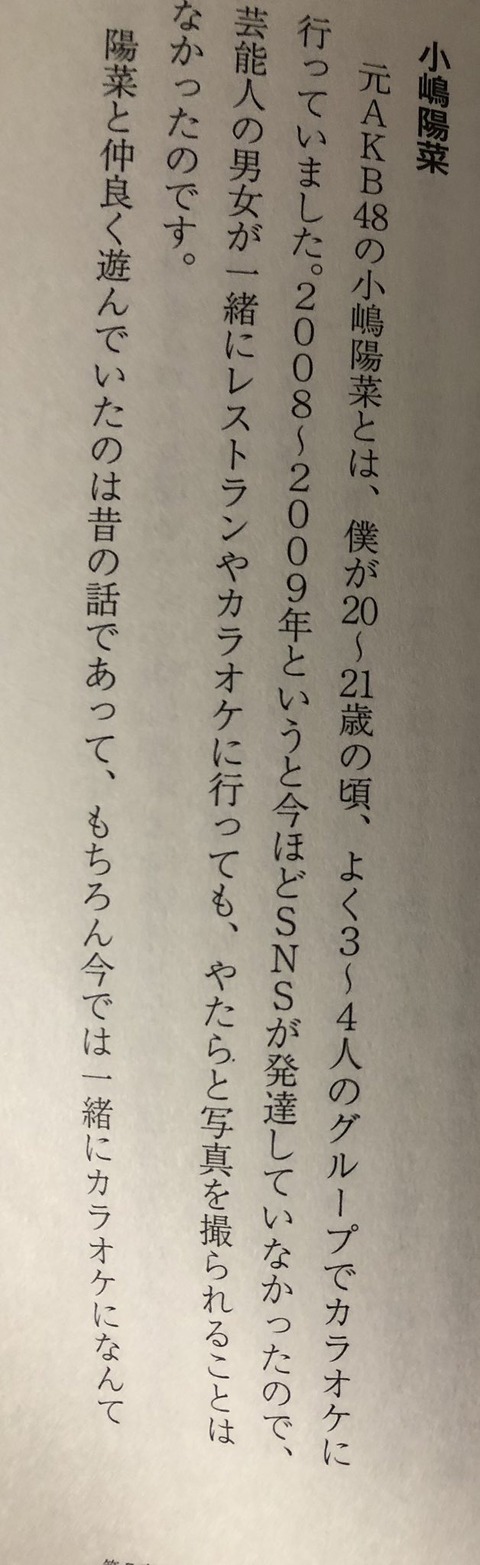 小嶋陽菜
元AKB48の小嶋陽菜とは、僕が20〜21歳の頃、よく3〜4人のグループでカラオケに
行っていました。2008〜2009年というと今ほどSNSが発達していなかったので、
芸能人の男女が一緒にレストランやカラオケに行っても、やたらと写真を撮られることは
なかったのです。
陽菜と仲良く遊んでいたのは昔の話であって、もちろん今では一緒にカラオケになんて